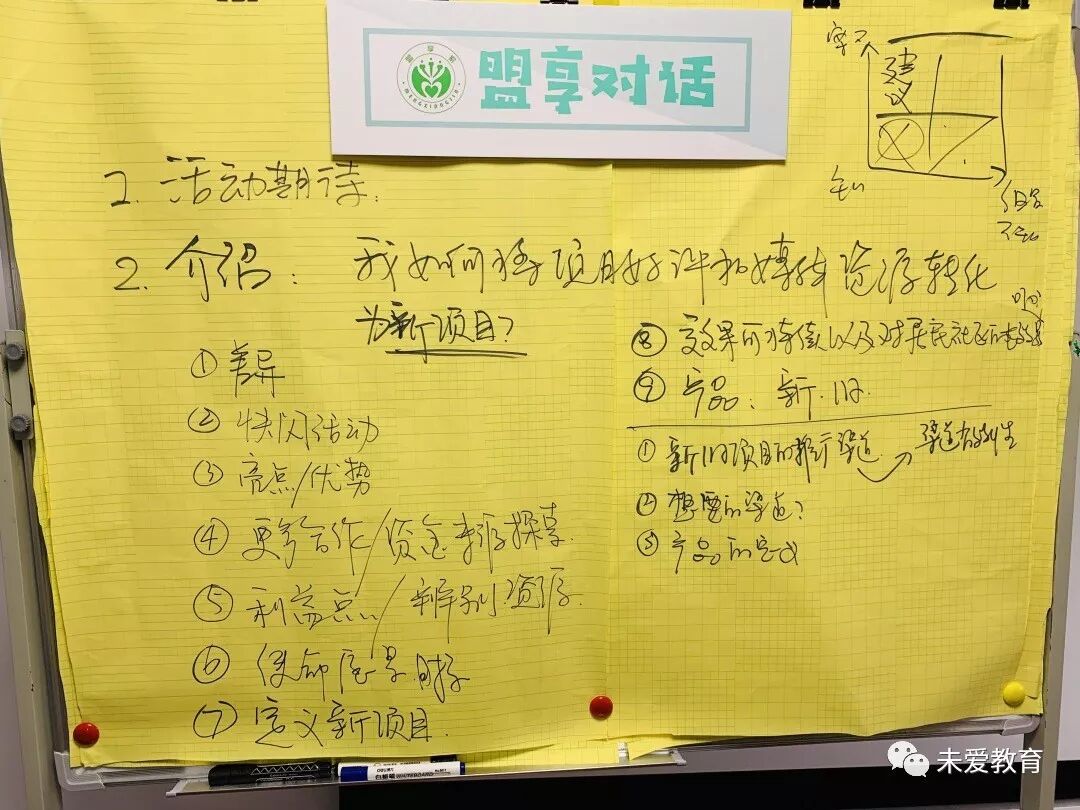 盟享对话
建议
1. 活动期待:
2. 介绍: 我如何将项目好评和媒体资源转化
为新项目?
① 差异
② 快闪活动
③ 亮点/优势
④ 更多合作/资金来源探索
⑤ 利益点/辨别资源
⑥ 使命愿景目标
⑦ 定义新项目
⑧ 效果可持续以及对居民社区的
⑨ 产品: 新、旧.
① 新旧项目的推行渠道
渠道有效性
② 想要的渠道?
③ 产品的定义
白板笔 WHITEBOARD
未爱教育